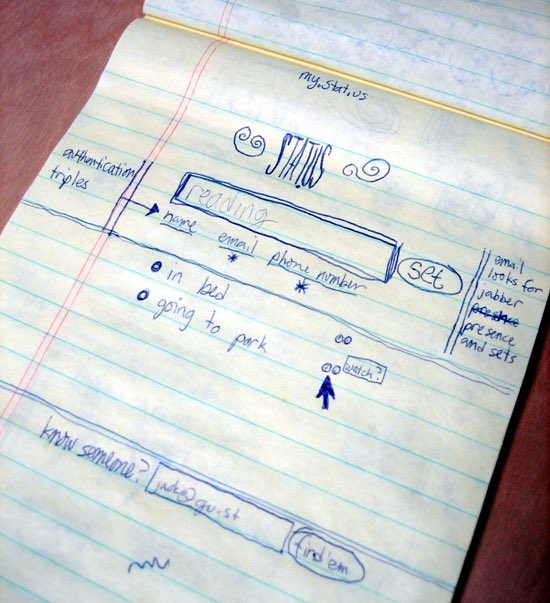 my.stat.us
STAT.US
authentication
triples
reading
name email phone number
* *
set
email
looks for
jabber
presence
presence
and sets
in bed
going to park
watch?
know someone?
find 'em